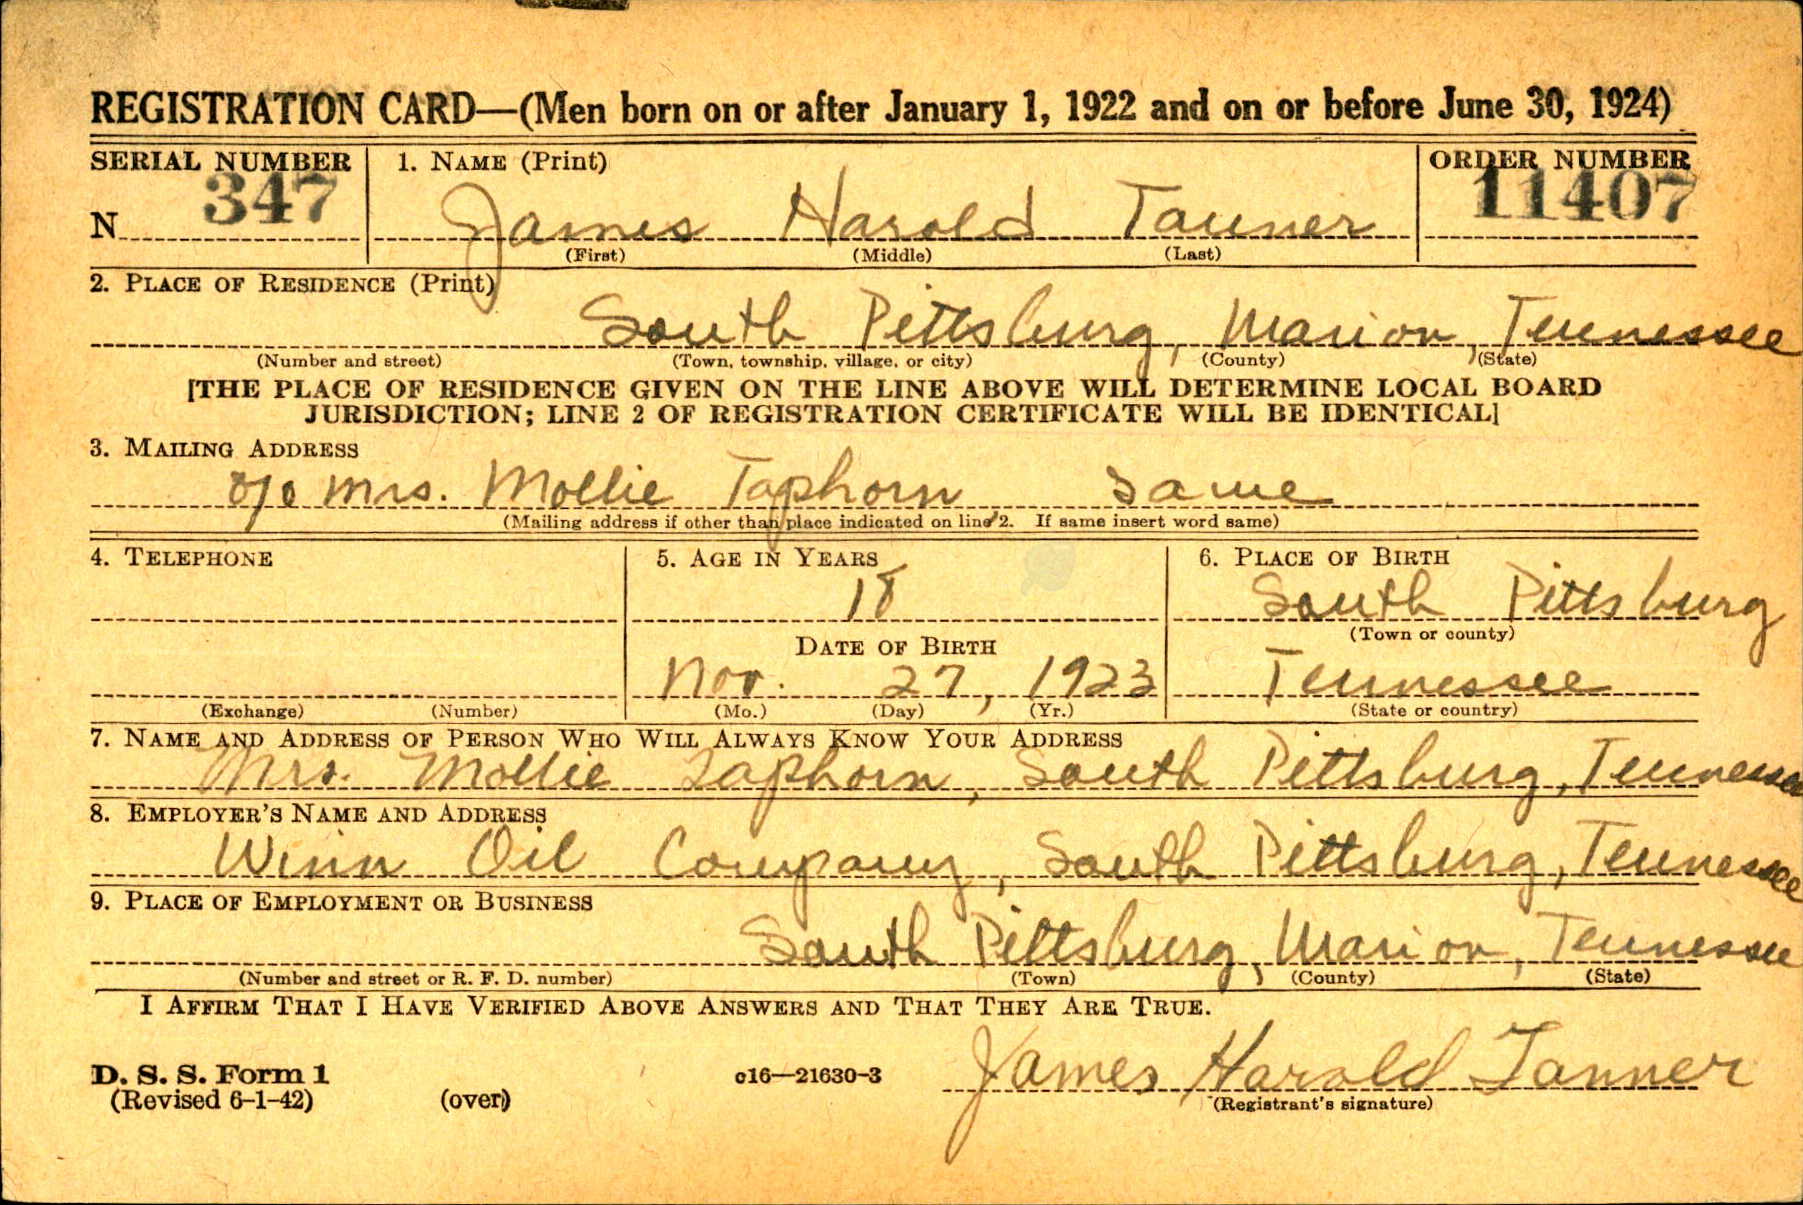 REGISTRATION CARD—(Men born on or after January 1, 1922 and on or before June 30, 1924)
SERIAL NUMBER 1. NAME (Print) ORDER NUMBER
N 347 James Harold Tanner 11407
(First) (Middle) (Last)
2. PLACE OF RESIDENCE (Print)
South Pittsburg, Marion, Tennessee
(Number and street) (Town, township, village, or city) (County) (State)
[THE PLACE OF RESIDENCE GIVEN ON THE LINE ABOVE WILL DETERMINE LOCAL BOARD
JURISDICTION; LINE 2 OF REGISTRATION CERTIFICATE WILL BE IDENTICAL]
3. MAILING ADDRESS
c/o Mrs. Mollie Taphorn Same
(Mailing address if other than place indicated on line 2. If same insert word same)
4. TELEPHONE 5. AGE IN YEARS 6. PLACE OF BIRTH
18 South Pittsburg
(Town or county)
DATE OF BIRTH
Nov. 27, 1923 Tennessee
(Exchange) (Number) (Mo.) (Day) (Yr.) (State or country)
7. NAME AND ADDRESS OF PERSON WHO WILL ALWAYS KNOW YOUR ADDRESS
Mrs. Mollie Taphorn, South Pittsburg, Tennessee
8. EMPLOYER'S NAME AND ADDRESS
Winn Oil Company, South Pittsburg, Tennessee
9. PLACE OF EMPLOYMENT OR BUSINESS
South Pittsburg, Marion, Tennessee
(Number and street or R. F. D. number) (Town) (County) (State)
I AFFIRM THAT I HAVE VERIFIED ABOVE ANSWERS AND THAT THEY ARE TRUE.
James Harold Tanner
D. S. S. Form 1 c16—21630-3
(Revised 6-1-42) (over) (Registrant's signature)